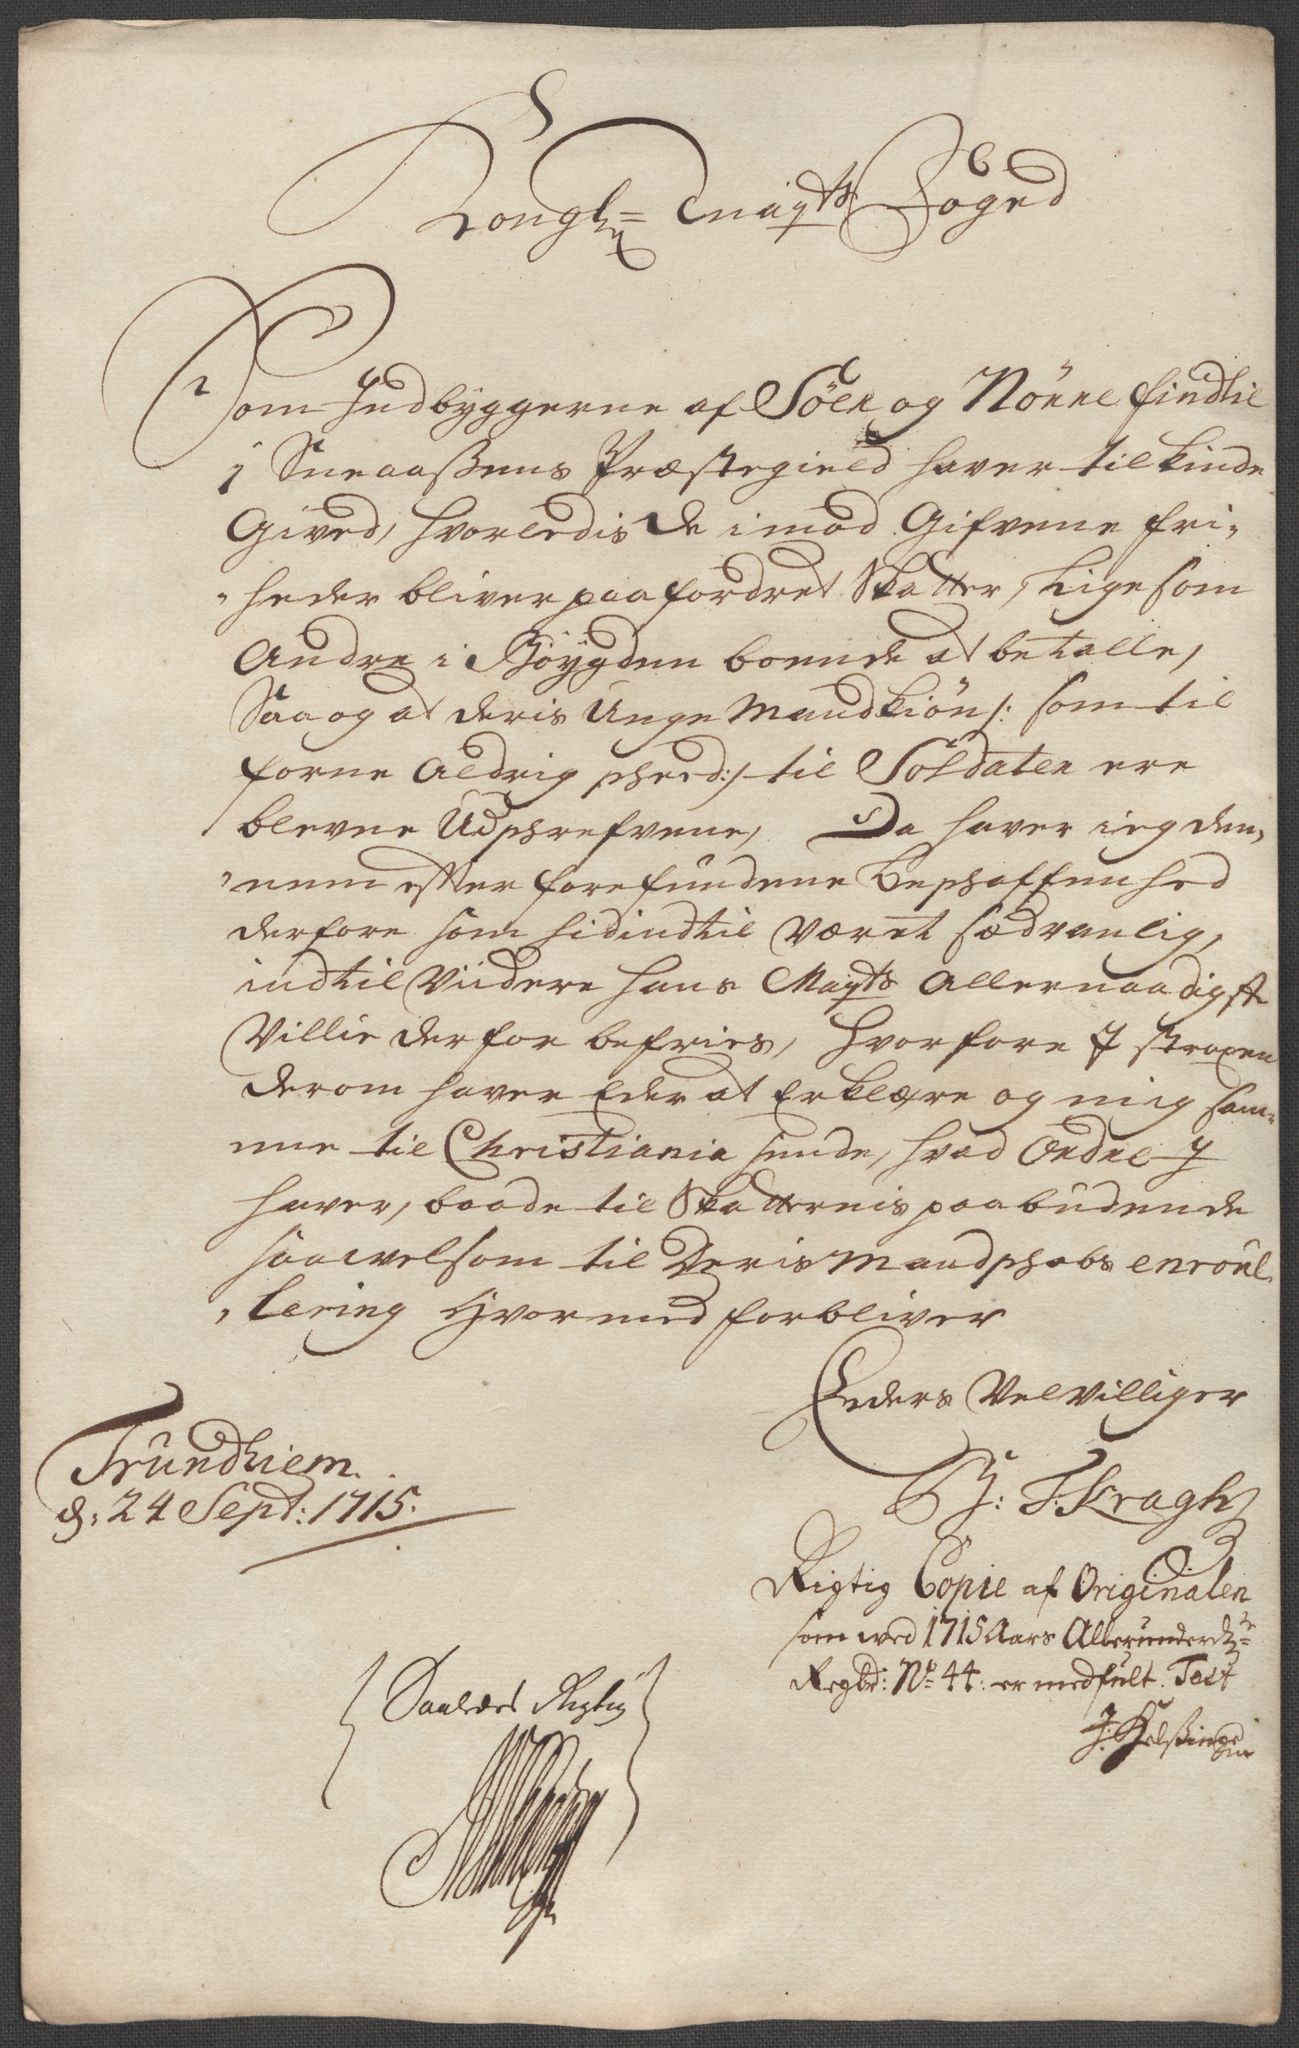 Kongl: Mayts Foged
Som Indbyggerne af Söer og Nörre findlie
i Sneaaßens Præstegield haver tilkinde
Gived, hvorledis de imod Gifvene fri-
heder bliver paafordret Skatter, Lige som
Andre i Bøygden boende at betalle,
Saa og at deris Unge Mandkiön /: som til
forne Aldrig skeed :/ til Soldater ere
blevne Udskrefvene, Da haver ieg den-
nem efter forefundene Beskaffenhed
derfore som hidindtil været sædvanlig,
indtil Viidere Hans Mayts Allernaadigste
Villie derfor befries, hvorfore I straxen
derom haver Eder at Erklære og mig sam-
me til Christiania sende, hvad Ordre I
haver, baade til Skatternis paabudende
saavelsom til Deris Mandskabs enroul-
lering Hvormed forbliver
Eders Velvilliger
Trundhiem
d: 24 Sept: 1715.
H: F: Kragh
Rigtig Copie af Originalen
som wed 1715 Aars Allerunderdste
Regbr: No 44: er medfult. Test
J: Helßing
Saaledes Rigtig